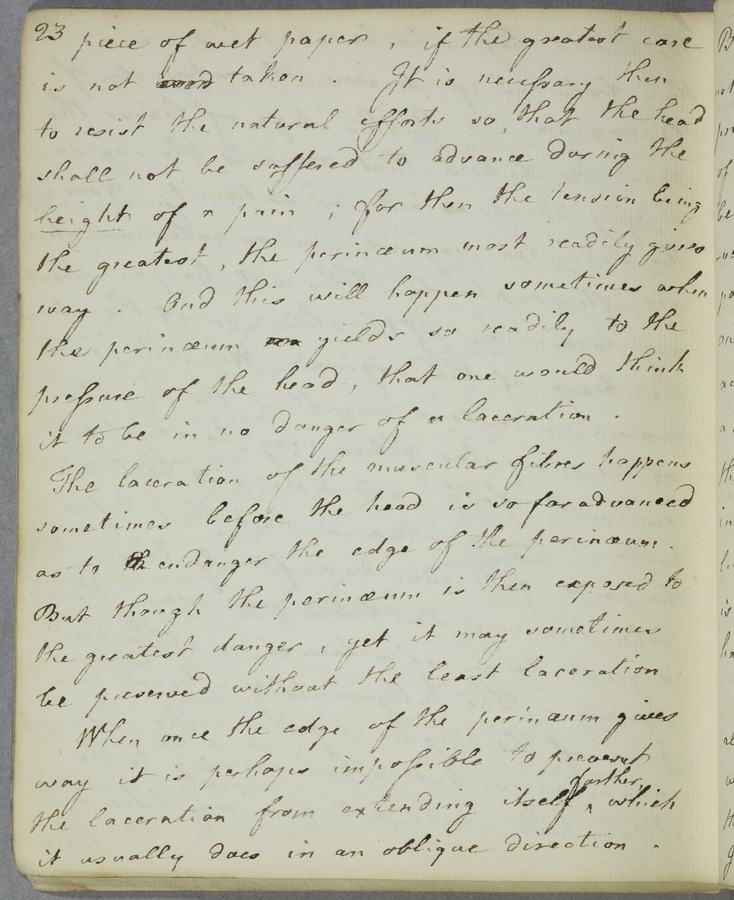 23 piece of wet paper, if the greatest care
is not taken. It is necessary then
to resist the natural efforts so, that the head
shall not be suffered to advance during the
height of a pain; for then the tension being
the greatest, the perinæum most readily gives
way. And this will happen sometimes when
the perinæum yields so readily to the
pressure of the head, that one would think
it to be in no danger of a laceration.
The laceration of the muscular fibres happens
sometimes before the head is so far advanced
as to endanger the edge of the perinæum.
But though the perinæum is then exposed to
the greatest danger, yet it may sometimes
be preserved without the least laceration
When once the edge of the perinæum gives
way it is perhaps impossible to prevent
the laceration from extending itself farther, which
it usually does in an oblique direction.